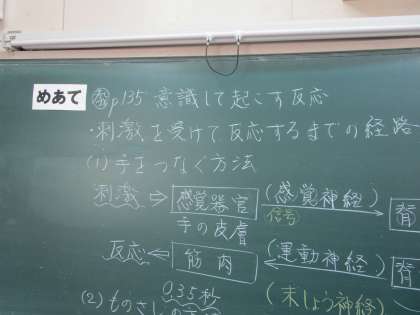 めあて 教p135 意識して起こす反応
・刺激を受けて反応するまでの経路
(1)手をつなぐ方法
刺激 ⇨ 感覚器官 (感覚神経) 脊
手の皮膚 信号
反応 ⇦ 筋肉 (運動神経) 脊
0.35秒 (末しょう神経)
(2)ものさし